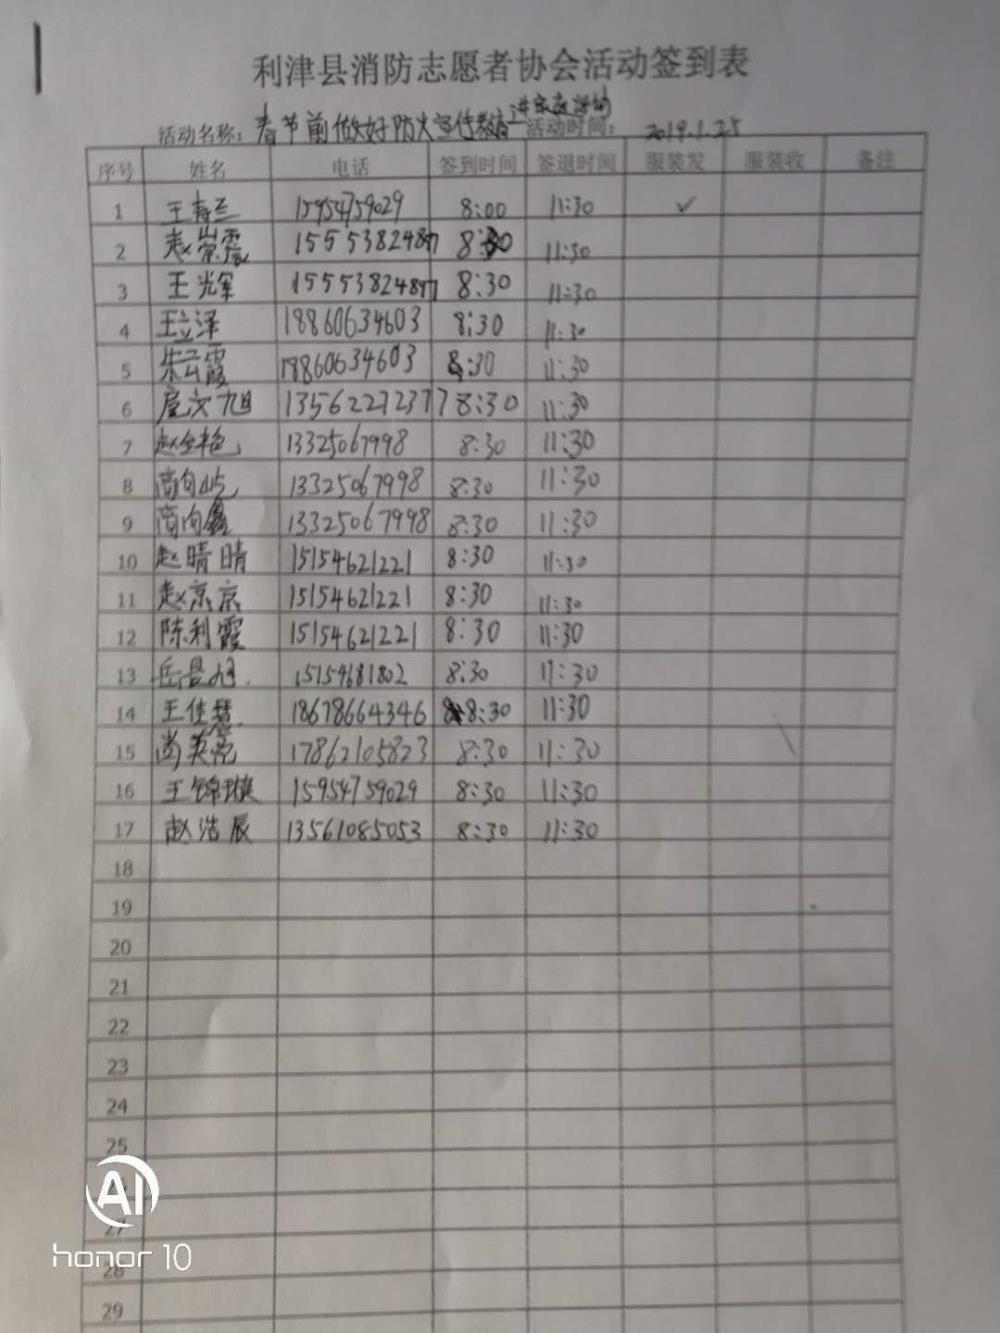 利津县消防志愿者协会活动签到表
活动名称：春节前做好防火宣传教育进家庭活动 活动时间： 2019.1.25
序号 姓名 电话 签到时间 签退时间 服装发 服装收 备注
1 王寿兰 15954759029 8:00 11:30 ✓
2 赵崇霞 15553824877 8:30 11:30
3 王光军 15553824877 8:30 11:30
4 王立泽 18860634603 8:30 11:30
5 朱云霞 18860634603 8:30 11:30
6 扈文旭 13562272377 8:30 11:30
7 赵金艳 13325067998 8:30 11:30
8 商向屿 13325067998 8:30 11:30
9 商向鑫 13325067998 8:30 11:30
10 赵晴晴 15154621221 8:30 11:30
11 赵京京 15154621221 8:30 11:30
12 陈利霞 15154621221 8:30 11:30
13 岳 15154681802 8:30 11:30
14 王佳慧 18678664346 8:30 11:30
15 尚英亮 17862105823 8:30 11:30
16 王锦璇 15954759029 8:30 11:30
17 赵浩辰 13561085053 8:30 11:30
18
19
20
21
22
23
24
25
27
28
29
AI
honor 10